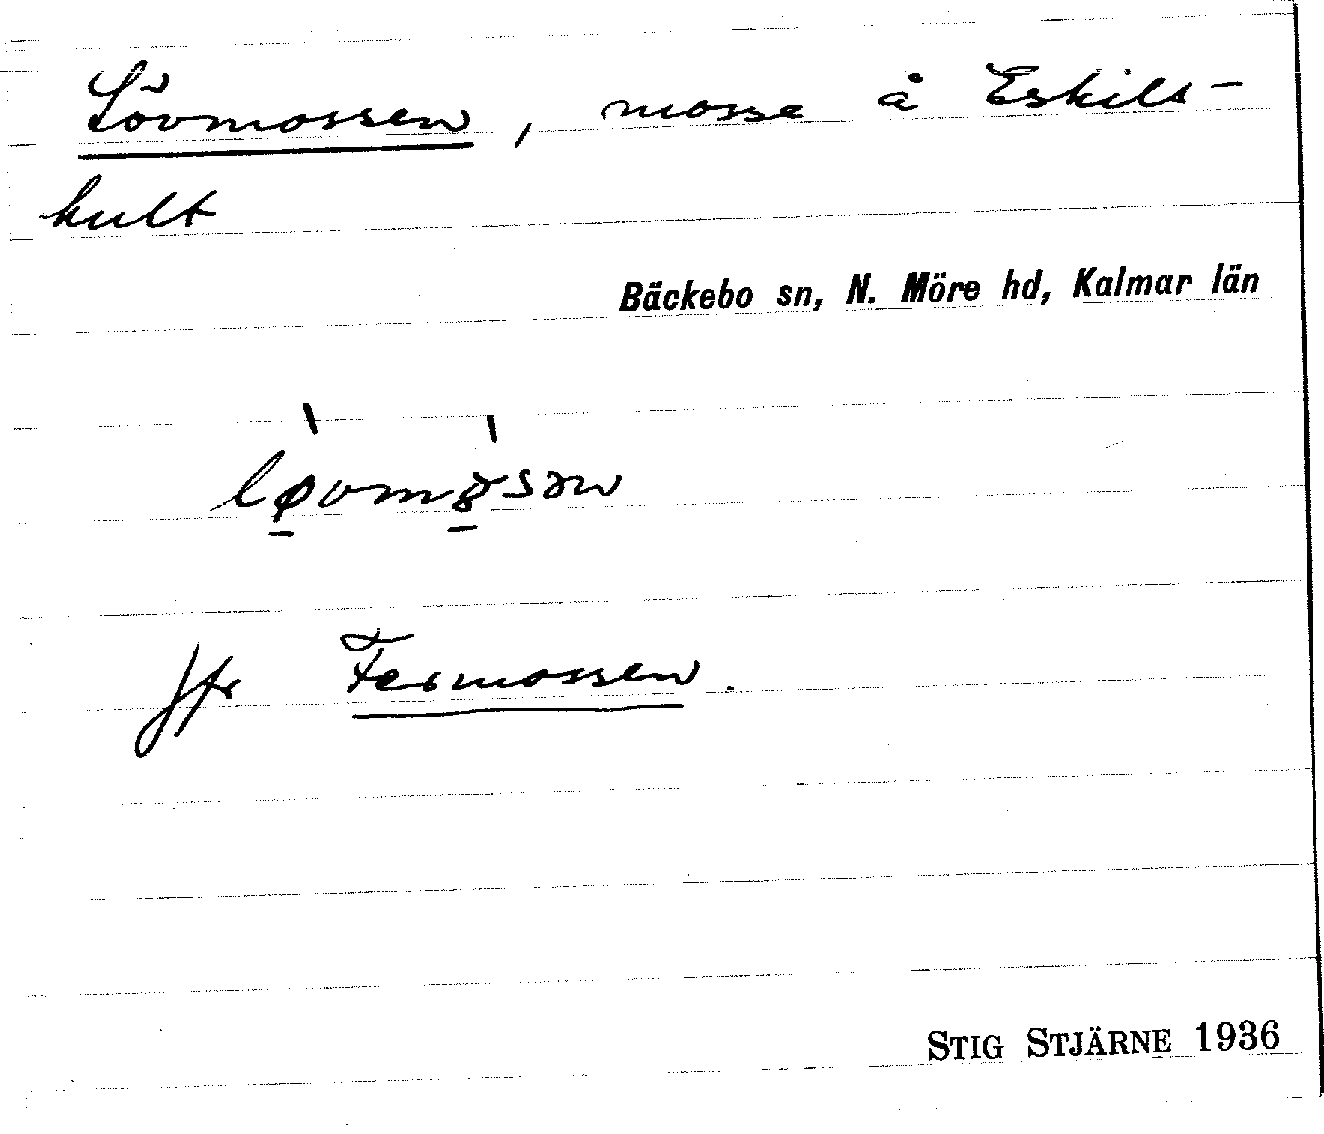 Lövmossen, mosse å Eskils-
kult
Bäckebo sn, N. Möre hd, Kalmar län
jfr Fermossen.
STIG STJÄRNE 1936